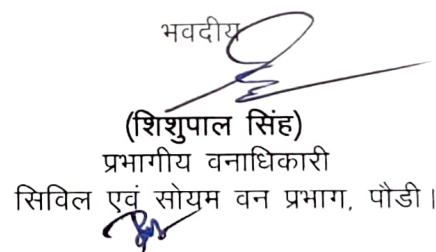 भवदीय
(शिशुपाल सिंह)
प्रभागीय वनाधिकारी
सिविल एवं सोयम वन प्रभाग, पौडी।